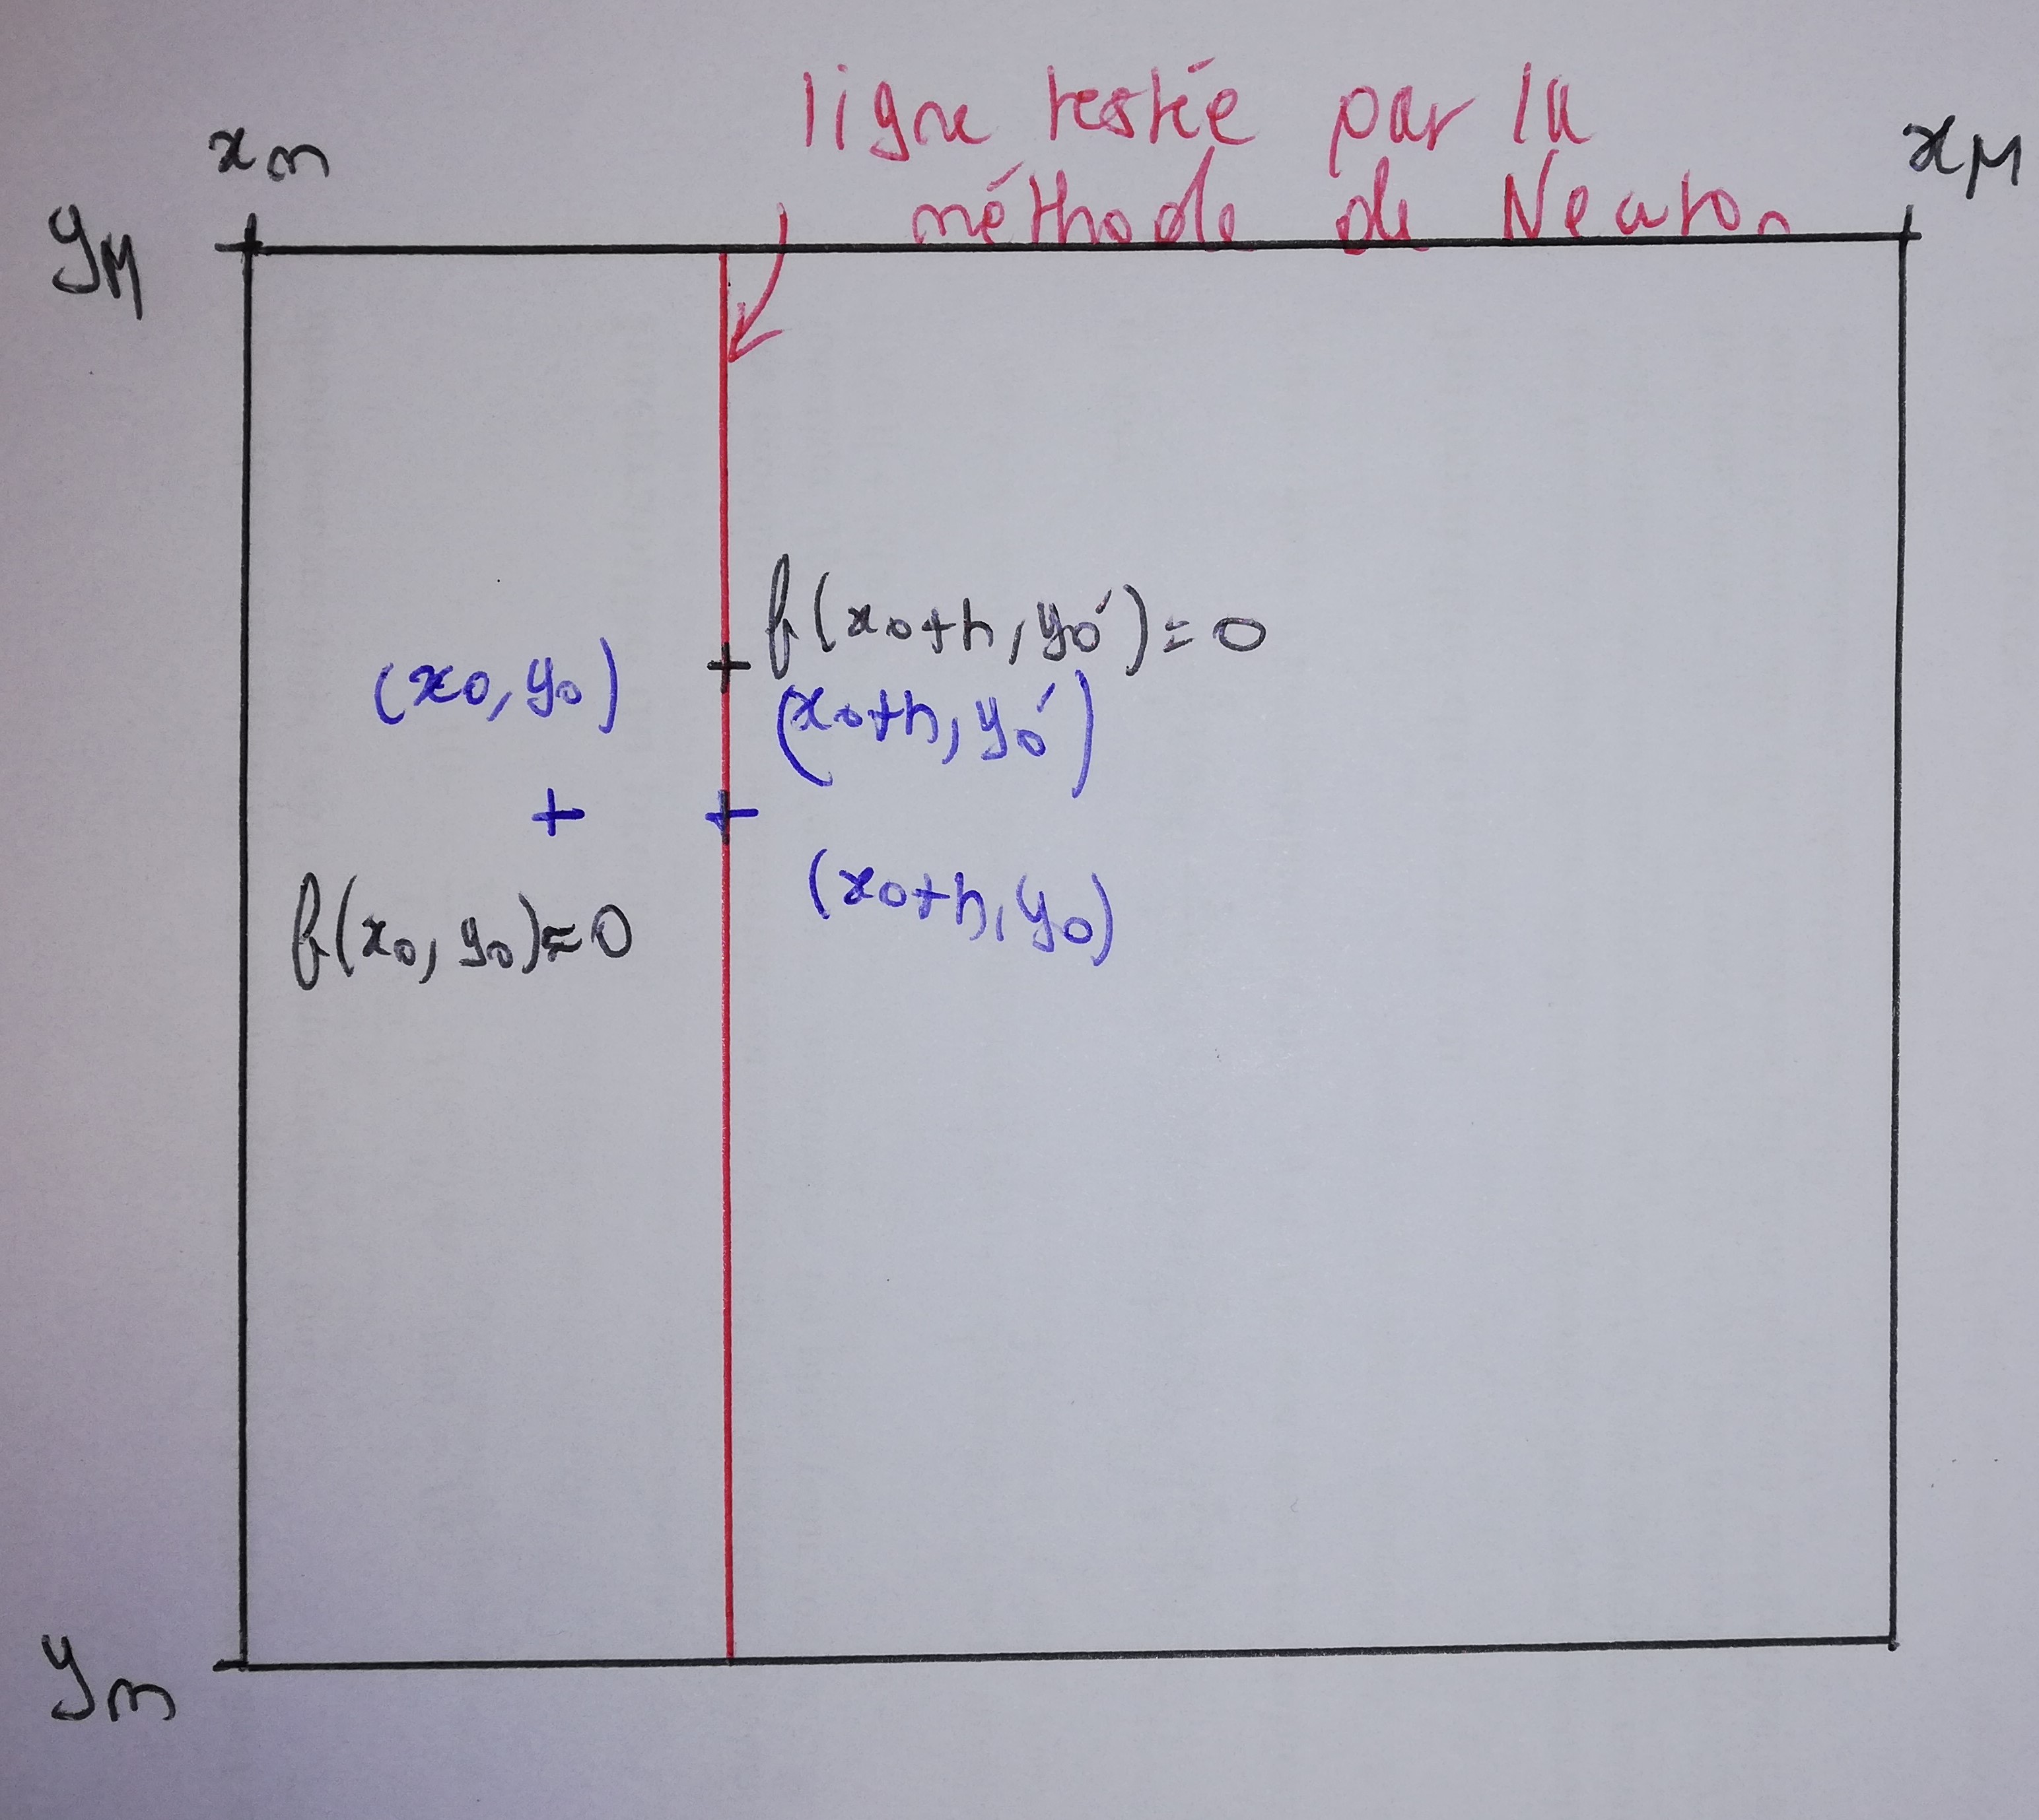 ligne testée par la
méthode de Newton
xm
xM
yM
f(x0+h, y0')=0
(x0, y0)
(x0+h, y0')
(x0+h, y0)
f(x0, y0)≈0
ym